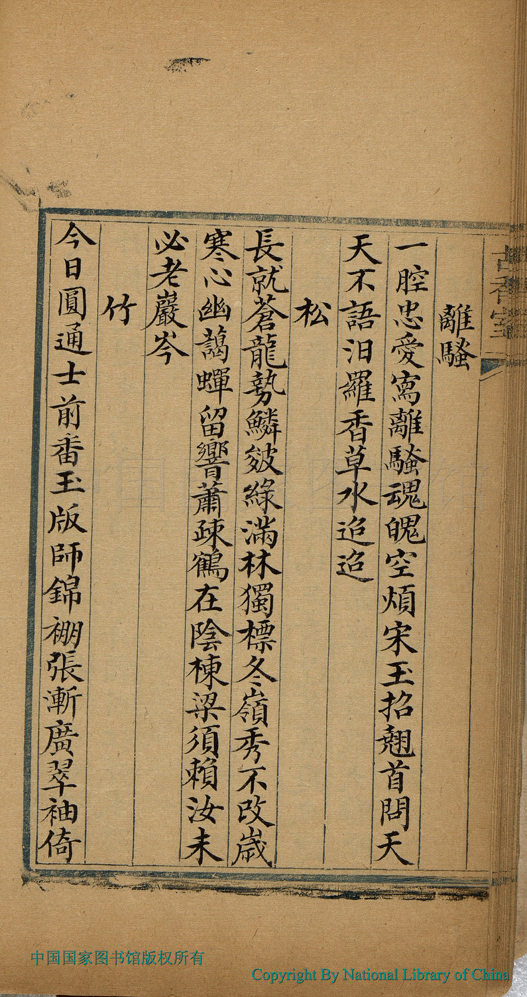 離騷
一腔忠愛寫離騷魂魄空煩宋玉招翹首問天
天不語汨羅香草水迢迢
松
長就蒼龍勢鱗皴綠滿林獨標冬嶺秀不改歲
寒心幽藹蟬留響蕭疎鶴在陰棟梁須賴汝未
必老巖岑
竹
今日圓通士前番玉版師錦棚張漸廣翠袖倚
中国国家图书馆版权所有
Copyright By National Library of China